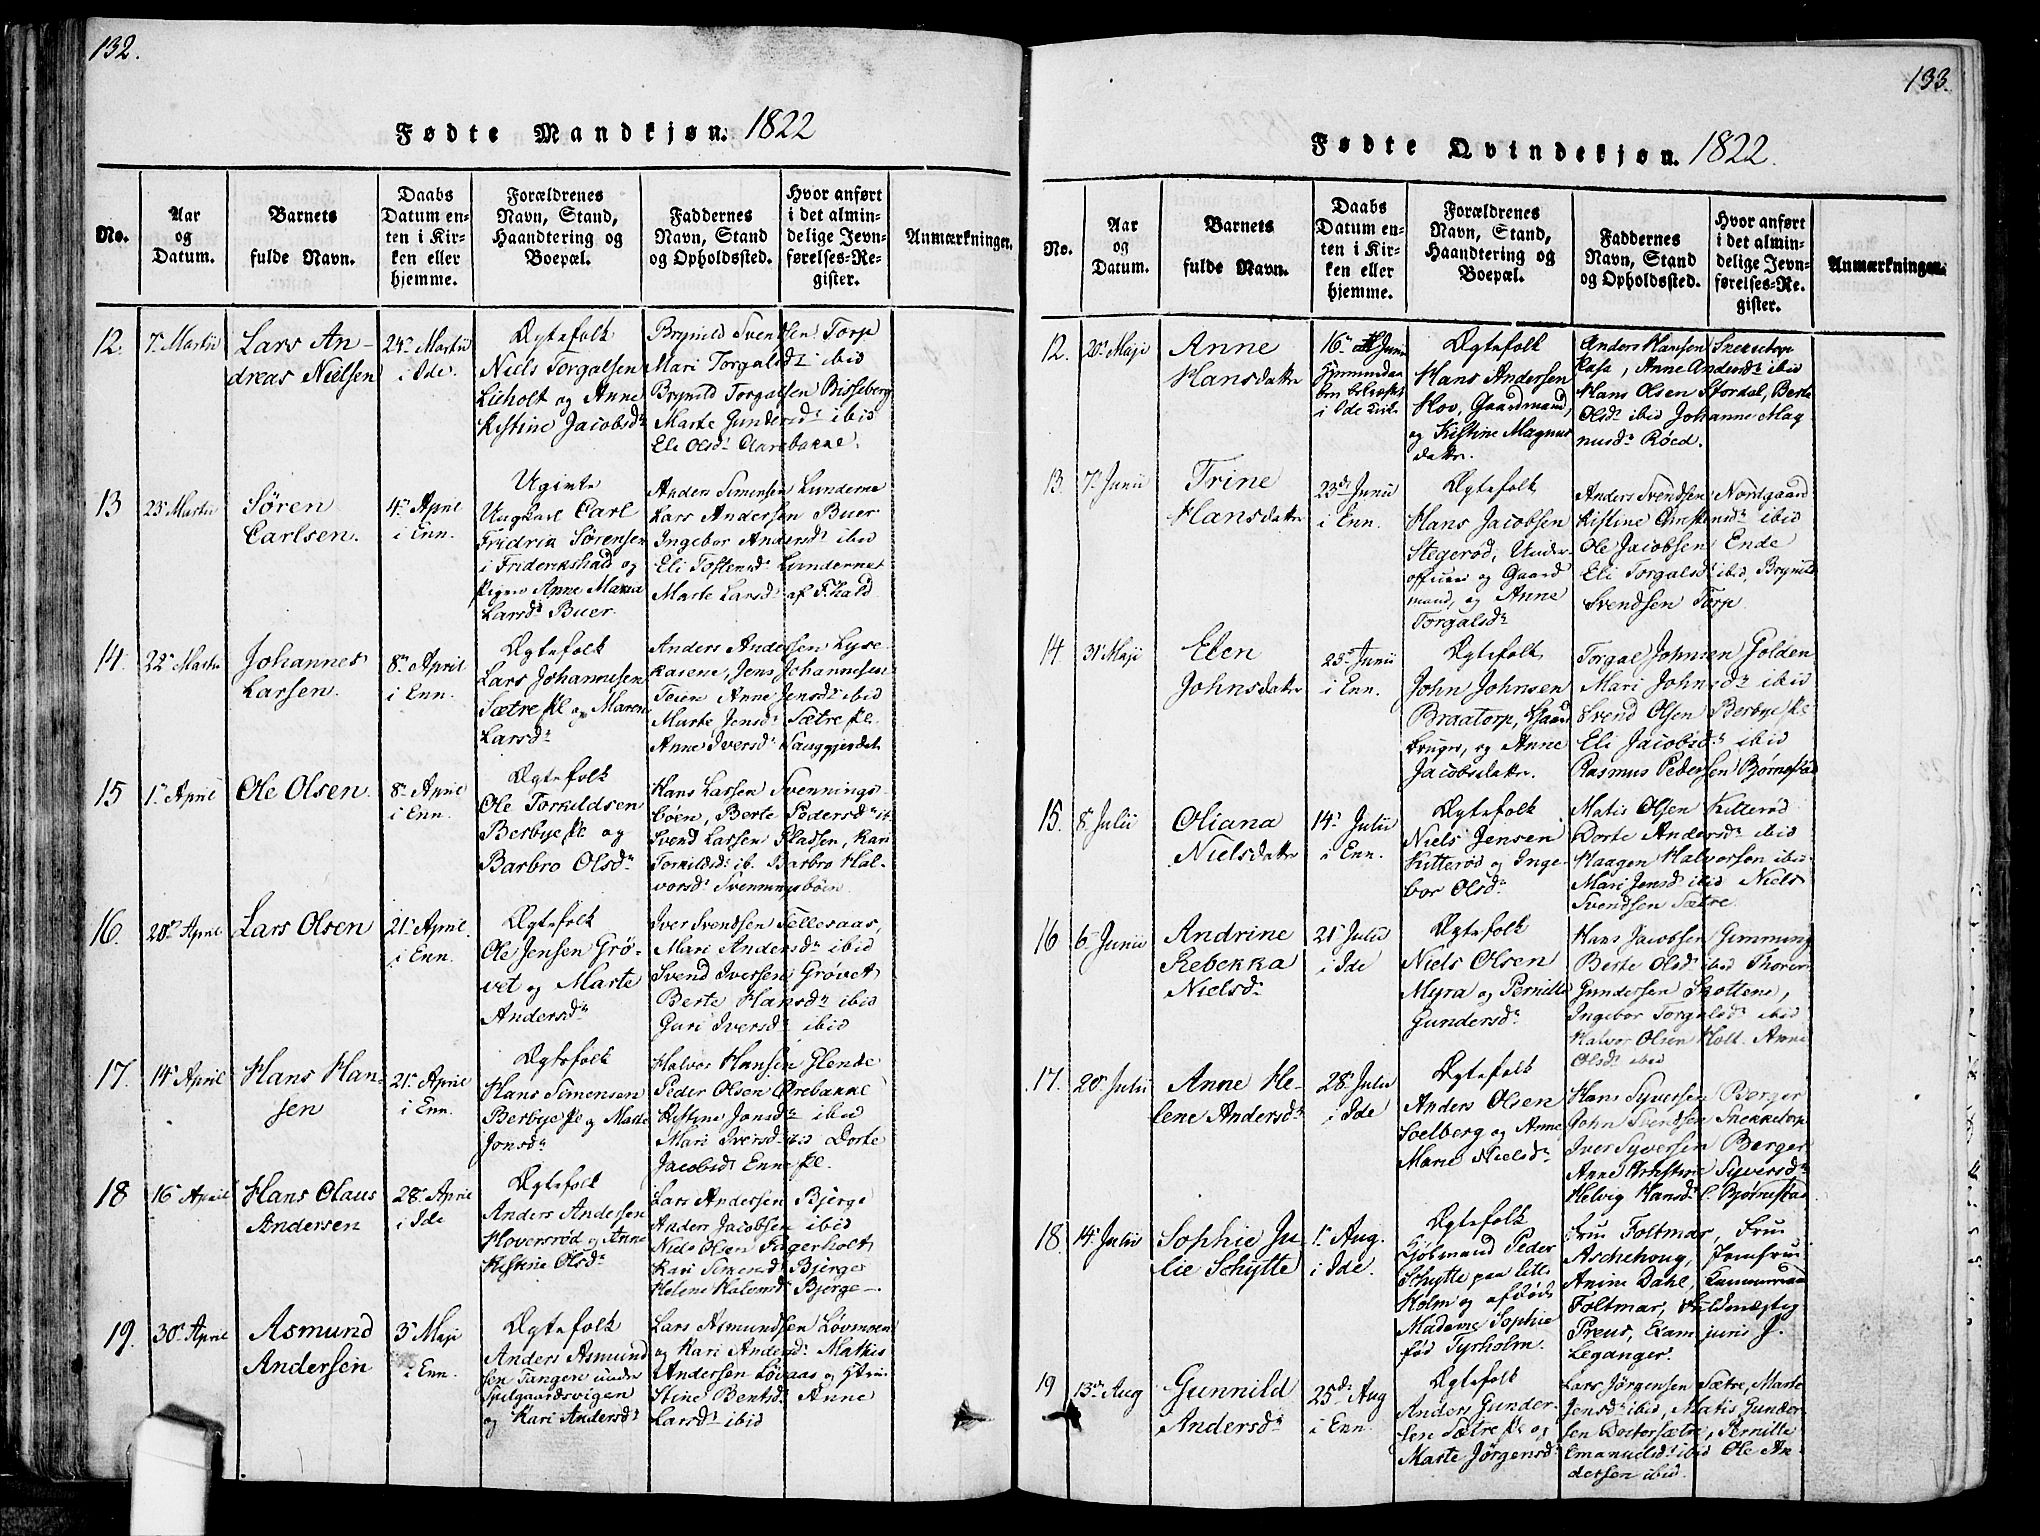 132.
Fødte Mandkjøn. 1822
No.
Aar
og
Datum.
Barnets
fulde Navn.
Daabs
Datum en-
ten i Kir-
ken eller
hjemme.
Forældrenes
Navn, Stand,
Haandtering og
Boepæl.
Faddernes
Navn, Stand
og Opholdssted.
Hvor anført
i det almin-
delige Jevn-
førelses-Re-
gister.
Anmærkninger.
12. 7de Martii
Lars An-
dreas Nielsen
24de Martii
i Ide.
Ægtefolk
Niels Torgalsen
Lieholt og Anne
Kistine Jacobsdr
Brynild Svendsen Torp
Mari Torgalsdr ibid
Brynild Torgalsen Bisseberg
Marte Gundersdr ibid
Eli Olsdr Aarebakke.
13 23de Martii
Søren
Carlsen.
4de April
i Enn.
Ugivte
Ungkarl Carl
Fridrik Sørensen
i Friderikshald og
Pigen Anne Maria
Larsdr Buer.
Anders Simensen Lunderne
Lars Andersen Buer
Ingebor Andersdr ibid
Eli Tostensdr Lundernes
Marte Larsdr af Fhald
14. 22de Martii
Johannes
Larsen.
8de April
i Enn.
Ægtefolk
Lars Johannesen
Sætre Pl og Maren
Larsdr
Anders Andersen Lyse-
Karene, Jens Johannesen
Toien Anne Jensdr ibid
Marte Jensdr Sætre Pl.
Anne Iversdr
15 1ste April
Ole Olsen.
8de April
i Enn.
Ægtefolk
Ole Torkildsen
Berbye Pl og
Barbro Olsdr
Hans Larsen Svennings-
böen, Berte Pedersdr ib
Svend Larsen Pladsen, Kari
Torkildsdr ib. Barbro Hal-
vorsdr Svenningsböen.
16. 20de April
Lars Olsen
21de April.
i Enn.
Ægtefolk
Ole Jensen Grö-
vet og Marte
Andersdr
Iver Svendsen Tellesaas,
Mari Andersdr ibid
Svend Iversen Grövet
Berte Hansdr ibid
Guri Iversdr ibid
17. 14de April
Hans Han-
sen
21de April
i Enn.
Ægtefolk
Hans Simensen
Berbye Pl og Marte
Jonsdr
Halvor Hansen Glende
Peder Olsen Ørebakke
Kistine Jonsdr ibid
Mari Iversdr ibid Dorte
Jacobsdr Enne Pl.
18 16de April
Hans Olaus
Andersen
28de April
i Ide
Ægtefolk
Anders Andersen
Hoversrød og Anne
Kistine Olsdr
Lars Andersen Bjerge
Anders Jacobsen ibid
Niels Olsen Fagerholt
Kari Simensdr Bjerge
Helene Halvorsdr Bjerge.
19. 30de April
Asmund
Andersen
3de Maji
i Enn.
Ægtefolk
Anders Asmund
sen Tangen under
Spulgaardsvigen
og Kari Andersdr
Lars Asmundsen Lövmoen
og Kari Andersdr Mathis
Andersen Lövaas og
Stine Bentsdr Anne
Larsdr ibid
133.
Fødte Qvindekjøn. 1822.
No.
Aar
og
Datum.
Barnets
fulde Navn.
Daabs
Datum en-
ten i Kir-
ken eller
hjemme.
Forældrenes
Navn, Stand,
Haandtering og
Boepæl.
Faddernes
Navn, Stand
og Opholdssted.
Hvor anført
i det almin-
delige Jevn-
førelses-Re-
gister.
Anmærkninger.
12. 20de Maji
Anne
Hansdatter
16de Junii
Hjemmedaa
ben bekræftet
i Ide Kirke
Ægtefolk
Hans Andersen
Hov, Gaardmand,
og Kistine Magnus
datter.
Anders Hansen Snekketorp
Rasa, Anne Andersdr ibid
Hans Olsen Stordal, Berte
Olsdr ibid Johanne Mag
nusdr Röed.
13. 7de Junii
Trine
Hansdatter
23de Junii
i Enn.
Ægtefolk
Hans Jacobsen
Stegerød, Under-
officeer og Gaard
mand, og Anne
Torgalsdr
Anders Svendsen Nordgaard
Kistine Christensdr ibid
Ole Jacobsen Ende
Eli Torgalsdr ibid, Brynild
Svendsen Torp.
14 31te Maji
Elen
Johnsdatter
23de Junii
i Enn.
Ægtefolk
John Johnsen
Braatorp, Gaard
bruger, og Anne
Jacobsdatter.
Torgal Johnsen Folden
Mari Johnsdr ibid
Svend Olsen Berbye Pl.
Eli Jacobsdr ibid
Rasmus Pedersen Bjørnstad
15. 8de Julii
Oliana
Nielsdatter
14de Julii
i Enn.
Ægtefolk
Niels Jensen
Kitterød og Inge-
bor Olsdr
Matis Olsen Kitterød
Dorte Andersdr ibid
Haagen Halvorsen ibid
Mari Jensdr ibid Niels
Svendsen Sætre.
16 6te Junii
Andrine
Rebekka
Nielsdr
21de Julii
i Ide
Ægtefolk
Niels Olsen
Myra og Pernille
Gundersdr
Hans Jacobsen Gimming
Berte Olsdr ibid Thorer
Gundersen Skottene,
Ingebor Torgalsdr ibid
Halvor Olsen Holt Anne
Olsdr ibid
17. 20de Julii
Anne He-
lene Andersdr
28de Julii
i Ide
Ægtefolk
Anders Olsen
Soelberg og Anne
Marie Nielsdr
Hans Syversen Berger
John Svendsen Snekketorp
Iver Syversen Berger
Anne Christine Syversdr
Helvig Hansdr Bjørnestad
18. 14de Julii
Sophie Ju
lie Schytte
1ste Aug.
i Ide.
Ægtefolk
Kjøbmand Peder
Schytte paa Lille
Holm og afdøde
Madame Sophie
fød Tyrholm.
Frue Foltmar, Frue
Aschehoug, Jomfrue
Anine Dahl, Kammerraad
Foltmar, Fuldmægtig
Preus, Exam. juris J.
Leganger.
19 13de Aug
Gunnild
Andersdr
25de Aug
i Enn.
Ægtefolk
Anders Gunder-
sen Sætre Pl og
Marte Jørgensdr
Lars Jørgensen Sætre, Marte
Jensdr ibid, Matis Gunder-
sen Dortersætre, Pernille
Emanuelsdr ibid Ole An-
dersen ibid.